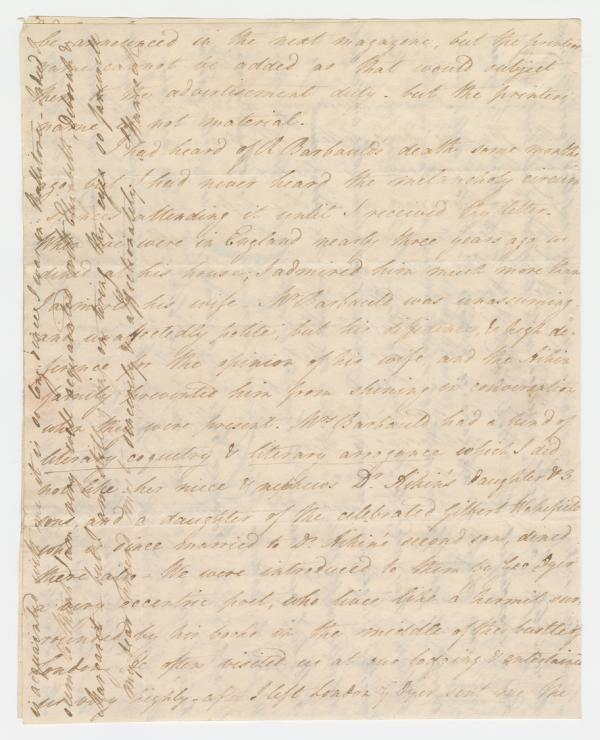 be announced in the next magazine, but the printers
name cannot be added as that would subject
them to the advertisement duty - but the printers
name is not material.
I had heard of R Barbauld's death some months
ago, but I had never heard the melancholy circum
stances attending it until I received thy letter.
When we were in England nearly three years ago we
dined at his house, I admired him much more than
I admired his wife. Mr Barbauld was unassuming
and unaffectedly polite, but his diffidence, & high de-
ference for the opinion of his wife and the Aikin
family prevented him from shining in conversation
when they were present. Mrs Barbauld had a kind of
literary coquetry & literary arrogance which I did
not like - her niece & nephews Dr. Aikin's daughter & 3
sons, and a daughter of the celebrated Gilbert Wakefield
since married to Dr. Aikin's second son, dined
there also - We were introduced to them by Geo Dyer
a very eccentric poet, who lives like a hermit sur-
rounded by his books in the middle of the bustle of
London. He often visited us at our lodging & entertained
us very highly - after I left London G Dyer sent me the
acquainted with me it is so long since I was in
I am well acquainted with Elizabeth, Deborah &
Margaret
my dear friend most sincerely & affectionately